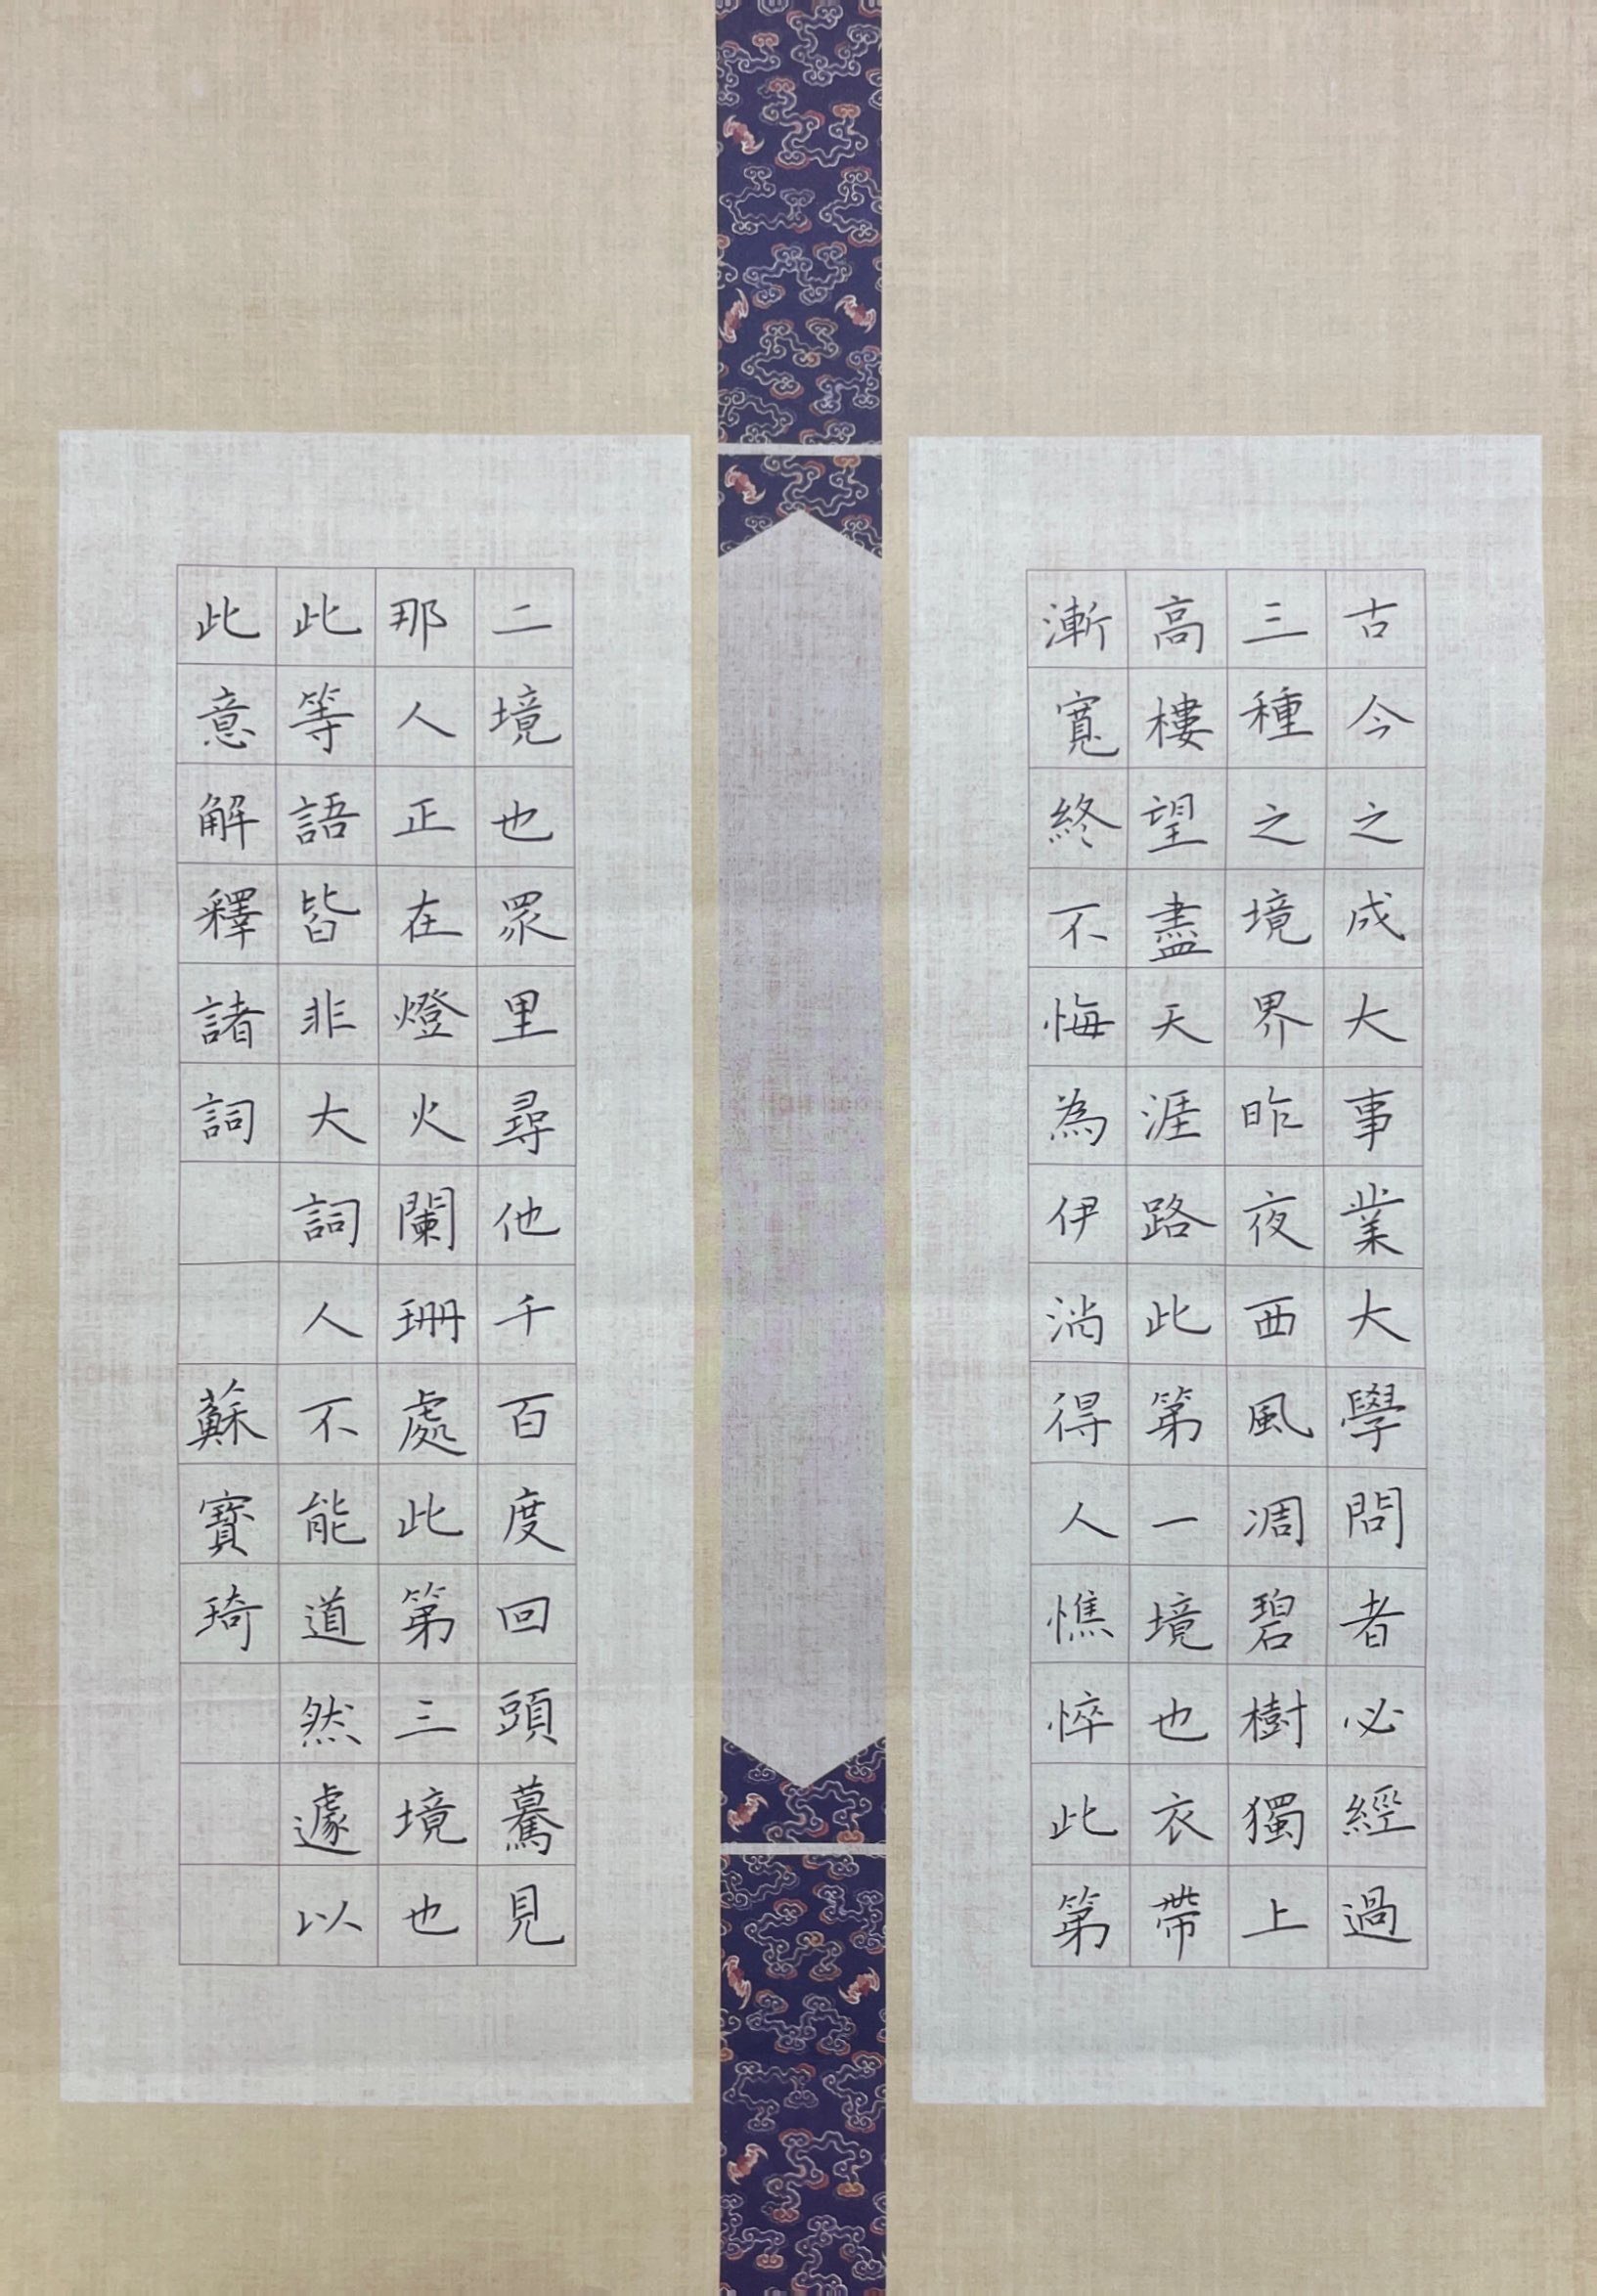 古今之成大事業大學問者必經過
三種之境界昨夜西風凋碧樹獨上
高樓望盡天涯路此第一境也衣帶
漸寬終不悔為伊消得人憔悴此第
二境也眾里尋他千百度回頭驀見
那人正在燈火闌珊處此第三境也
此等語皆非大詞人不能道然遽以
此意解釋諸詞 蘇寶琦